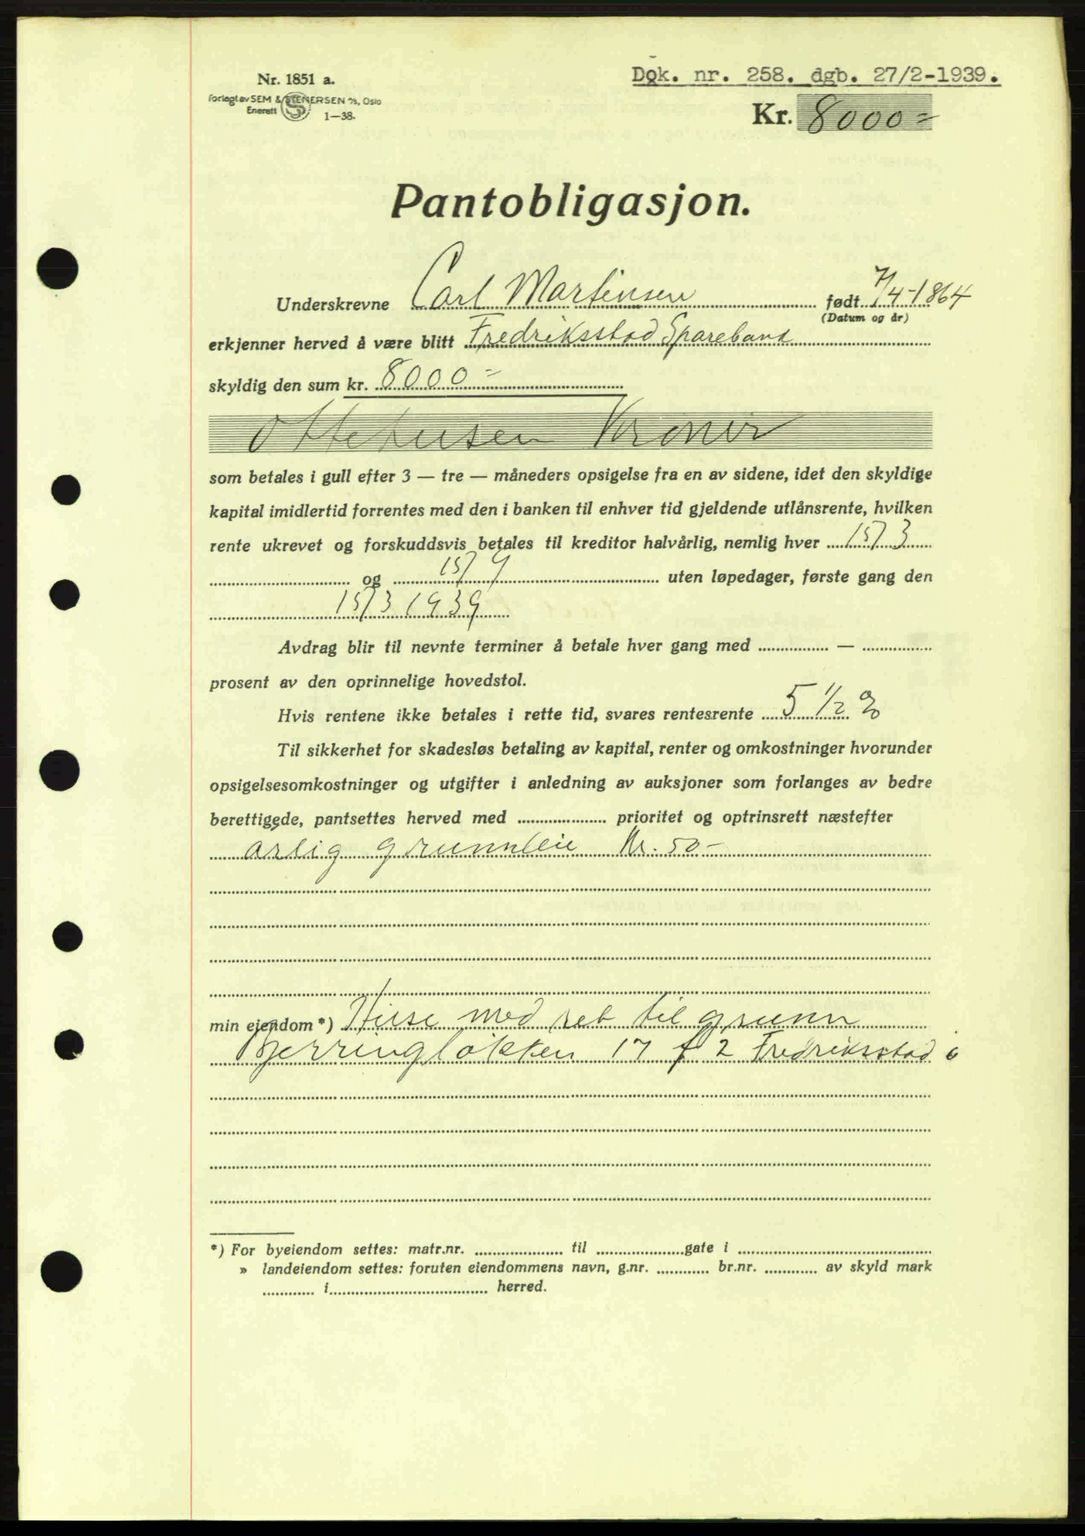 Nr. 1851 a.
Forlagt av SEM & STENERSEN A/S, Oslo
Enerett
1—38.
Dok. nr. 258. dgb. 27/2-1939.
Kr. 8000=
Pantobligasjon.
Underskrevne Carl Martinsen født 7/4-1864
(Datum og år)
erkjenner herved å være blitt Fredriksstad Sparebank
skyldig den sum kr. 8000=
Ottetusen Kroner
som betales i gull efter 3 — tre — måneders opsigelse fra en av sidene, idet den skyldige
kapital imidlertid forrentes med den i banken til enhver tid gjeldende utlånsrente, hvilken
rente ukrevet og forskuddsvis betales til kreditor halvårlig, nemlig hver 15/3
og 15/9 uten løpedager, første gang den
15/3 1939
Avdrag blir til nevnte terminer å betale hver gang med —
prosent av den oprinnelige hovedstol.
Hvis rentene ikke betales i rette tid, svares rentesrente 5 1/2 %
Til sikkerhet for skadesløs betaling av kapital, renter og omkostninger hvorunder
opsigelsesomkostninger og utgifter i anledning av auksjoner som forlanges av bedre
berettigede, pantsettes herved med prioritet og optrinsrett næstefter
årlig grunnleie Kr. 50-
min eiendom *) Huse med ret til grunn
Bjerringløkken 17 f 2 Fredriksstad
*) For byeiendom settes: matr.nr. til gate i
» landeiendom settes: foruten eiendommens navn, g.nr. br.nr. av skyld mark
i herred.